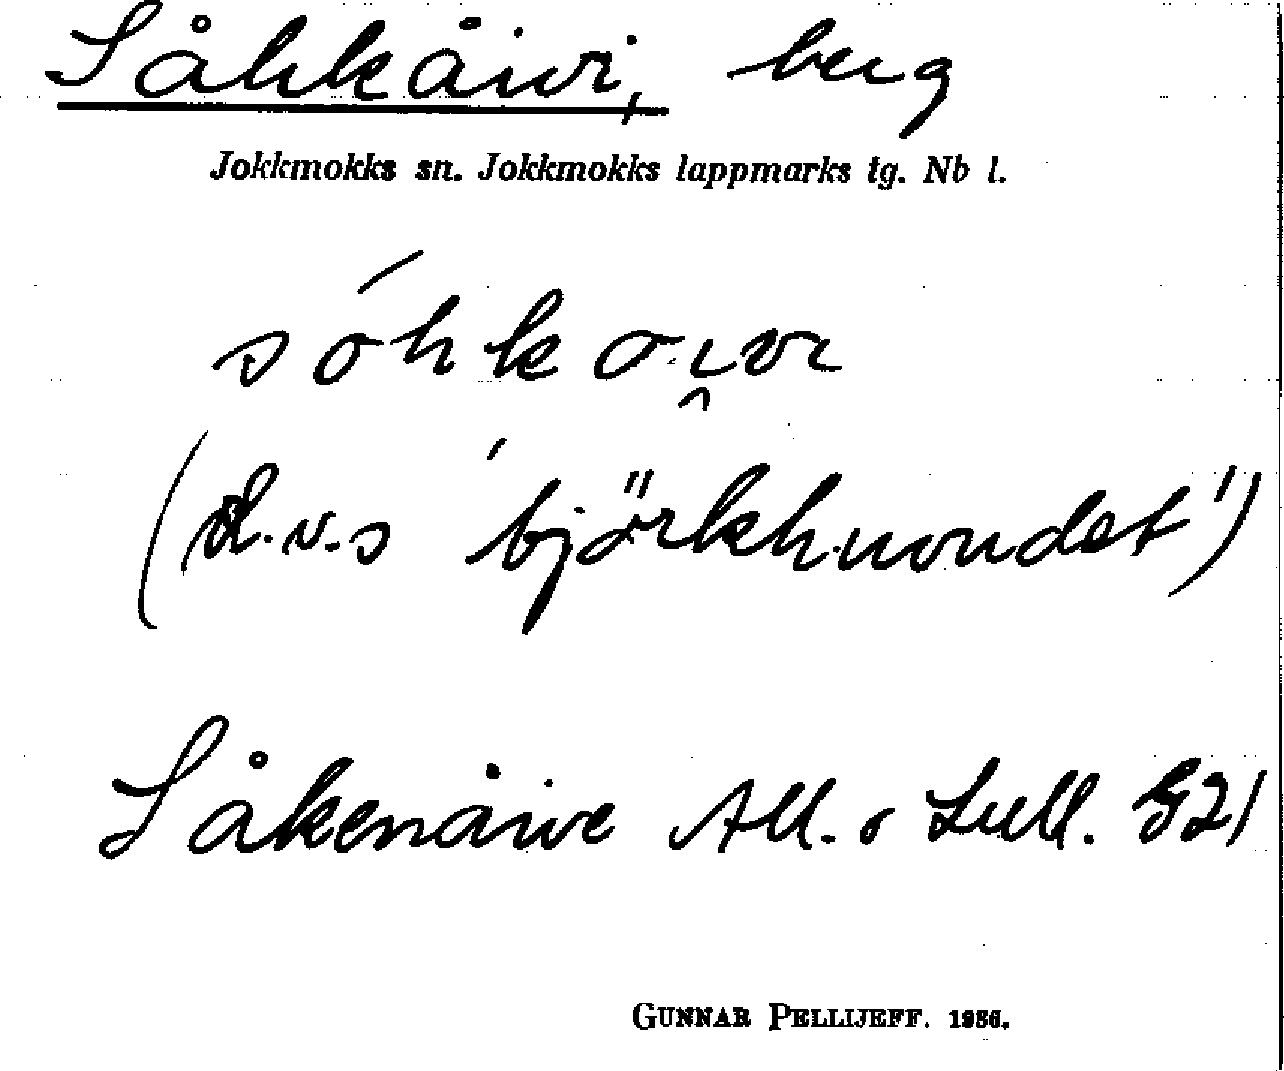 Såhkåivi, berg
Jokkmokks sn. Jokkmokks lappmarks tg. Nb l.
sóhkoi̭vi
(d.v.s 'björkhuvudet')
Såkenåive All. o Lull. G21
GUNNAR PELLIJEFF. 1956.